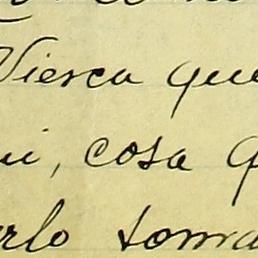 Viesca que
ui, cosa q
rlo toma